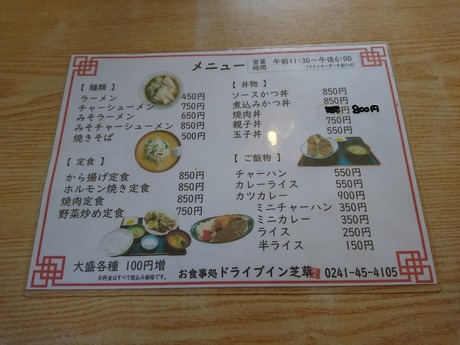 メニュー
営業時間 午前11:30～午後6:00
【 麺類 】
ラーメン 450円
チャーシューメン 750円
みそラーメン 650円
みそチャーシューメン 850円
焼きそば 500円
【 定食 】
から揚げ定食 850円
ホルモン焼き定食 850円
焼肉定食 850円
野菜炒め定食 750円
大盛各種 100円増
※料金はすべて税込み価格です。
【 丼物 】
ソースかつ丼 850円
煮込みかつ丼 850円
焼肉丼 800円
親子丼 750円
玉子丼 550円
【 ご飯物 】
チャーハン 550円
カレーライス 550円
カツカレー 900円
ミニチャーハン 350円
ミニカレー 350円
ライス 250円
半ライス 150円
お食事処 ドライブイン芝草 0241-45-4105